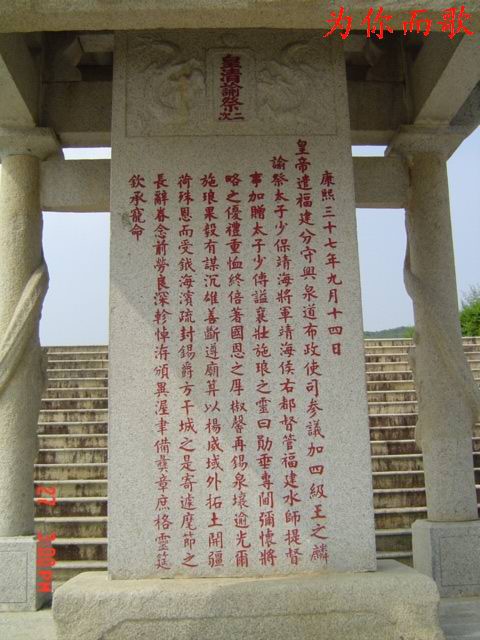 为你而歌
皇清諭祭
二次
康熙三十七年九月十四日
皇帝遣福建分守興泉道布政使司参議加四級王之麟
諭祭太子少保靖海將軍靖海侯右都督管福建水師提督
事加贈太子少傅謚襄壯施琅之靈曰勛垂專閫彌懷將
略之優禮重恤終倍著國恩之厚椒馨再錫泉壤逾光爾
施琅果毅有謀沉雄善斷遵廟算以楊威域外拓土開疆
荷殊恩而受鉞海濱疏封錫爵方干城之是寄遽麾節之
長辭眷念前勞良深軫悼海頒異渥聿備彝章庶格靈筵
欽承寵命
27 3:00 PM